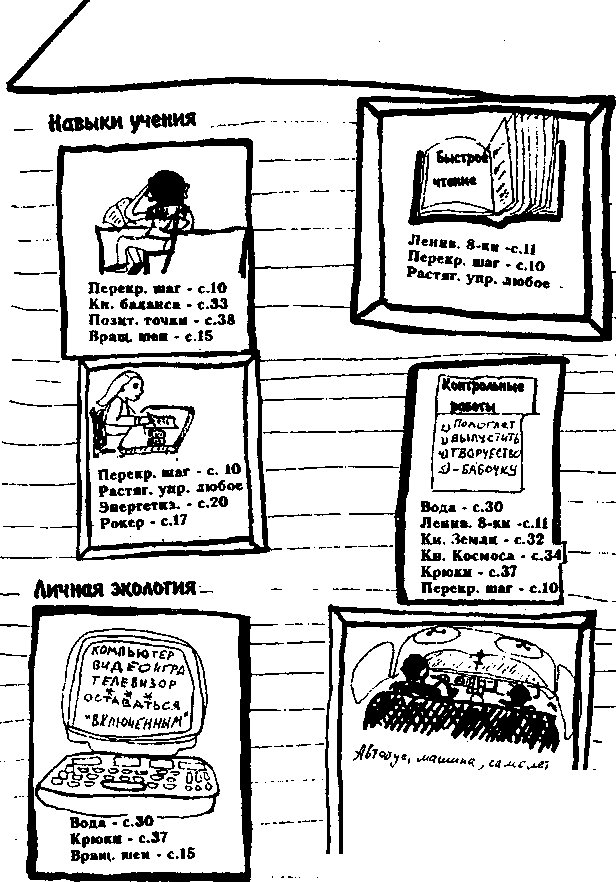 Навыки учения
Перекр. шаг - с.10
Кн. баланса - с.33
Позит. точки - с.38
Вращ. шеи - с.15
Быстрое
чтение
Ленив. 8-ки -с.11
Перекр. шаг - с.10
Растяг. упр. любое
Перекр. шаг - с. 10
Растяг. упр. любое
Энергетиз. - с.20
Рокер - с.17
Контрольные
работы
ПОМОГАЕТ
ВЫПУСТИТЬ
ТВОРЧЕСТВО
-БАБОЧКУ
Вода - с.30
Ленив. 8-ки -с.11
Кн. Земли - с.32
Кн. Космоса - с.34
Крюки - с.37
Перекр. шаг - с.10
Личная экология
КОМПЬЮТЕР
ВИДЕОИГРА
ТЕЛЕВИЗОР
ОСТАВАТЬСЯ
"ВКЛЮЧЕННЫМ"
Вода - с.30
Крюки - с.37
Вращ. шеи - с.15
Автобус, машина, самолет